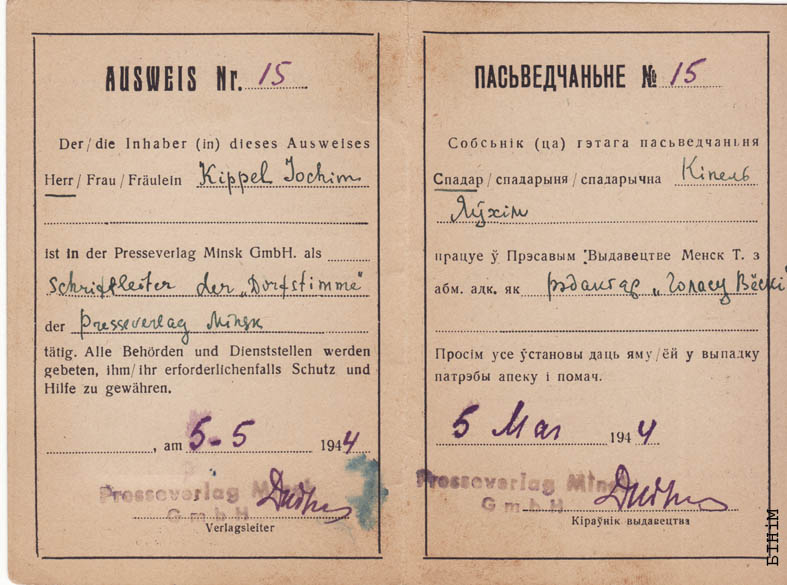 AUSWEIS Nr. 15
Der/die Inhaber (in) dieses Ausweises
Herr/Frau/Fräulein Kippel Jochim
ist in der Presseverlag Minsk GmbH. als
Schriftleiter der „Dorfstimme"
der Presseverlag Minsk
tätig. Alle Behörden und Dienststellen werden
gebeten, ihm/ihr erforderlichenfalls Schutz und
Hilfe zu gewähren.
, am 5-5 1944
Presseverlag Minsk
GmbH
Verlagsleiter
ПАСЬВЕДЧАНЬНЕ № 15
Собсьнік (ца) гэтага пасьведчаньня
Спадар/спадарыня/спадарычна Кіпель
Яўхім
працуе ў Прэсавым Выдавецтве Менск Т. з
абм. адк. як рэдактар „Голасу Вёскі
Просім усе ўстановы даць яму/ёй у выпадку
патрэбы апеку і помач.
5 Mai 1944
Presseverlag Minsk
GmbH
Кіраўнік выдавецтва
БІНіМ